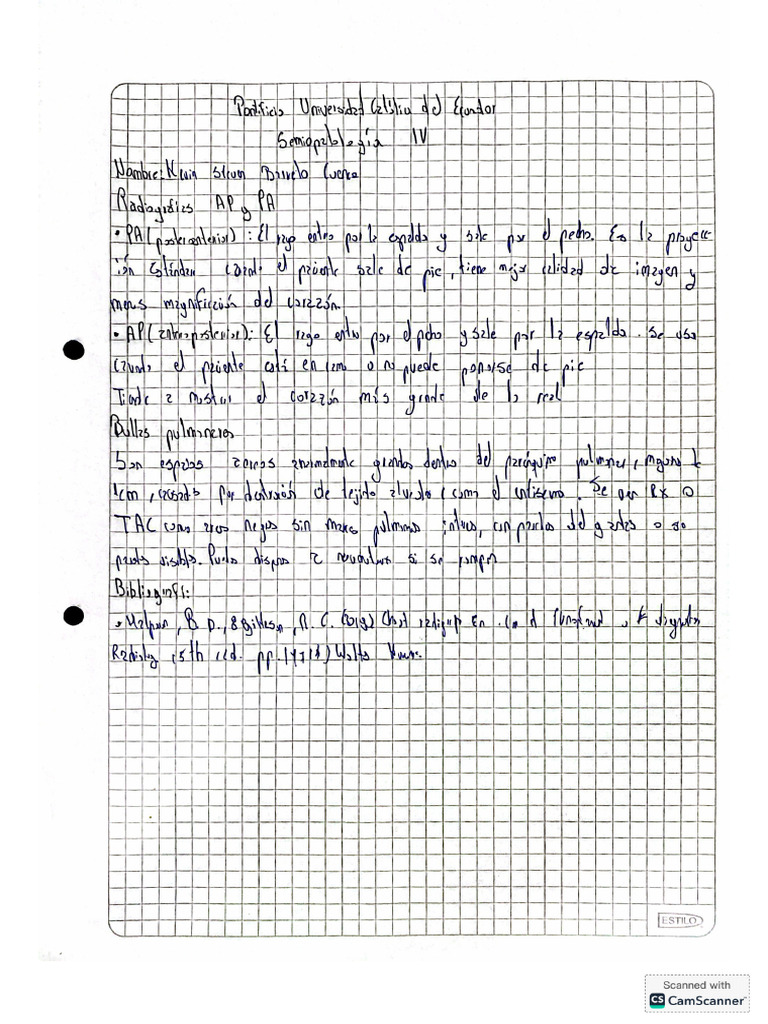 Pontificia Universidad Católica del Ecuador
Semiopatología IV
Nombre: Kevin Steven Barreto Cuenca
Radiografías AP y PA
• PA (posteroanterior): El rayo entra por la espalda y sale por el pecho. Es la proyecc
ión estándar cuando el paciente de pie, tiene mejor calidad de imagen y
menos magnificación del corazón.
• AP (anteroposterior): El rayo entra por el pecho y sale por la espalda. Se usa
cuando el paciente está en cama o no puede ponerse de pie
Tiende a mostrar el corazón más grande de lo real
Bullas pulmonares
Son espacios aéreos anormalmente grandes dentro del parénquima pulmonar, mayores
1cm, causados por destrucción de tejido alveolar, como el enfisema. Se ven RX o
TAC como negras sin pulmonar, con paredes delgadas o sin
pared visible. a si se rompen
Bibliografía:
•
Radiology (5th ed. pp.
ESTILO
Scanned with
CS CamScanner